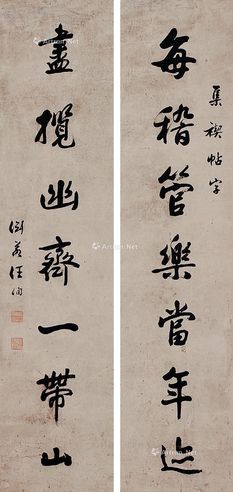 集禊帖字
每稽管樂當年迹
盡攬幽齊一帶山
淵若汪洵
Artron.Net
Artron.Net